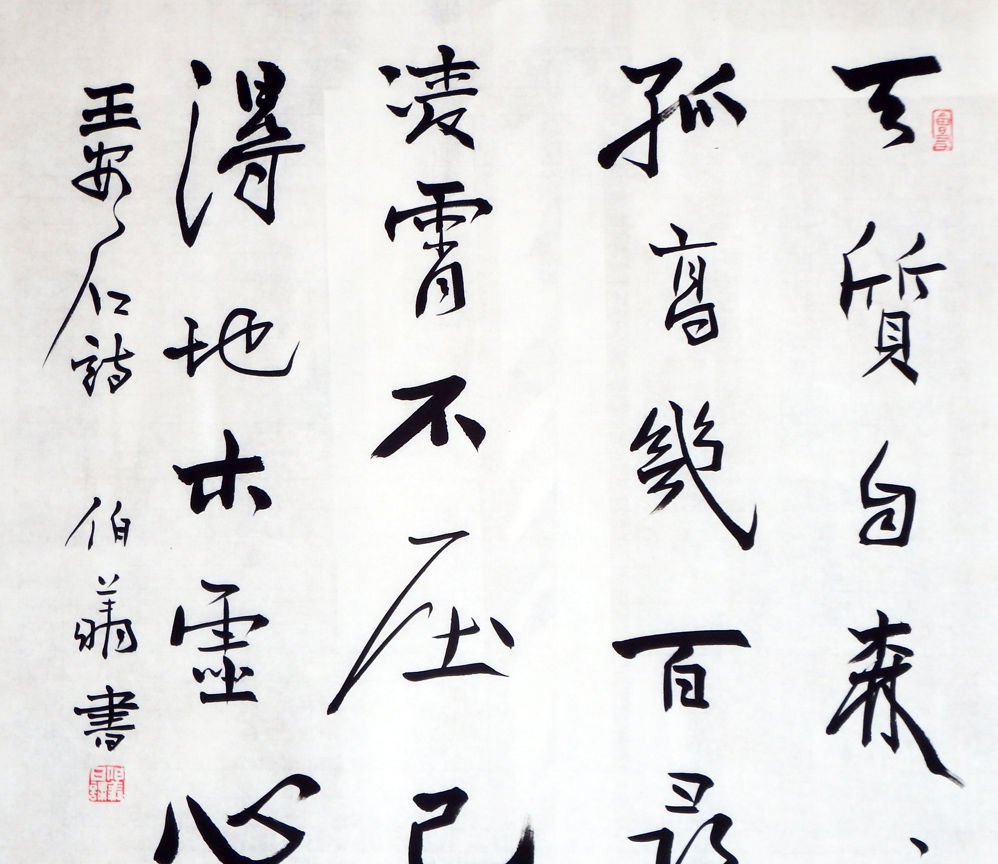 天質自森
孤高幾百尋
凌霄不压己
得地本靈心
王安石詩 伯羲書